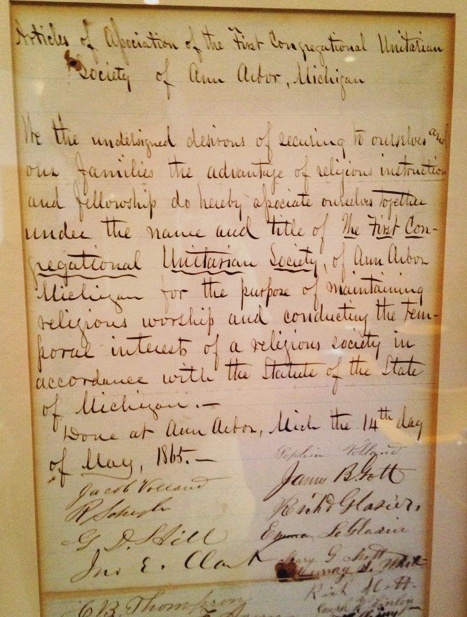 Articles of Association of the First Congregational Unitarian
Society of Ann Arbor, Michigan
We the undersigned desirous of securing to ourselves and
our families the advantage of religious instruction
and fellowship do hereby associate ourselves together
under the name and title of The First Con-
gregational Unitarian Society, of Ann Arbor
Michigan for the purpose of maintaining
religious worship and conducting the tem-
poral interest of a religious society in
accordance with the Statute of the State
of Michigan.—
Done at Ann Arbor, Mich the 14th day
of May, 1865.—
Jacob Volland
James B Gott
Richd Glasier,
G. D. Hill
Emma Glasier
Jno E. Clark
C B. Thompson